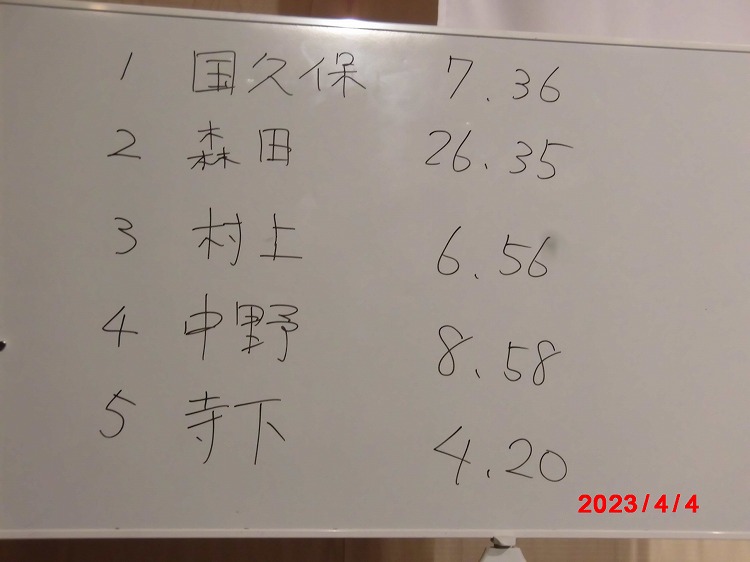 1 国久保 7.36
2 森田 26.35
3 村上 6.56
4 中野 8.58
5 寺下 4.20
2023/4/4